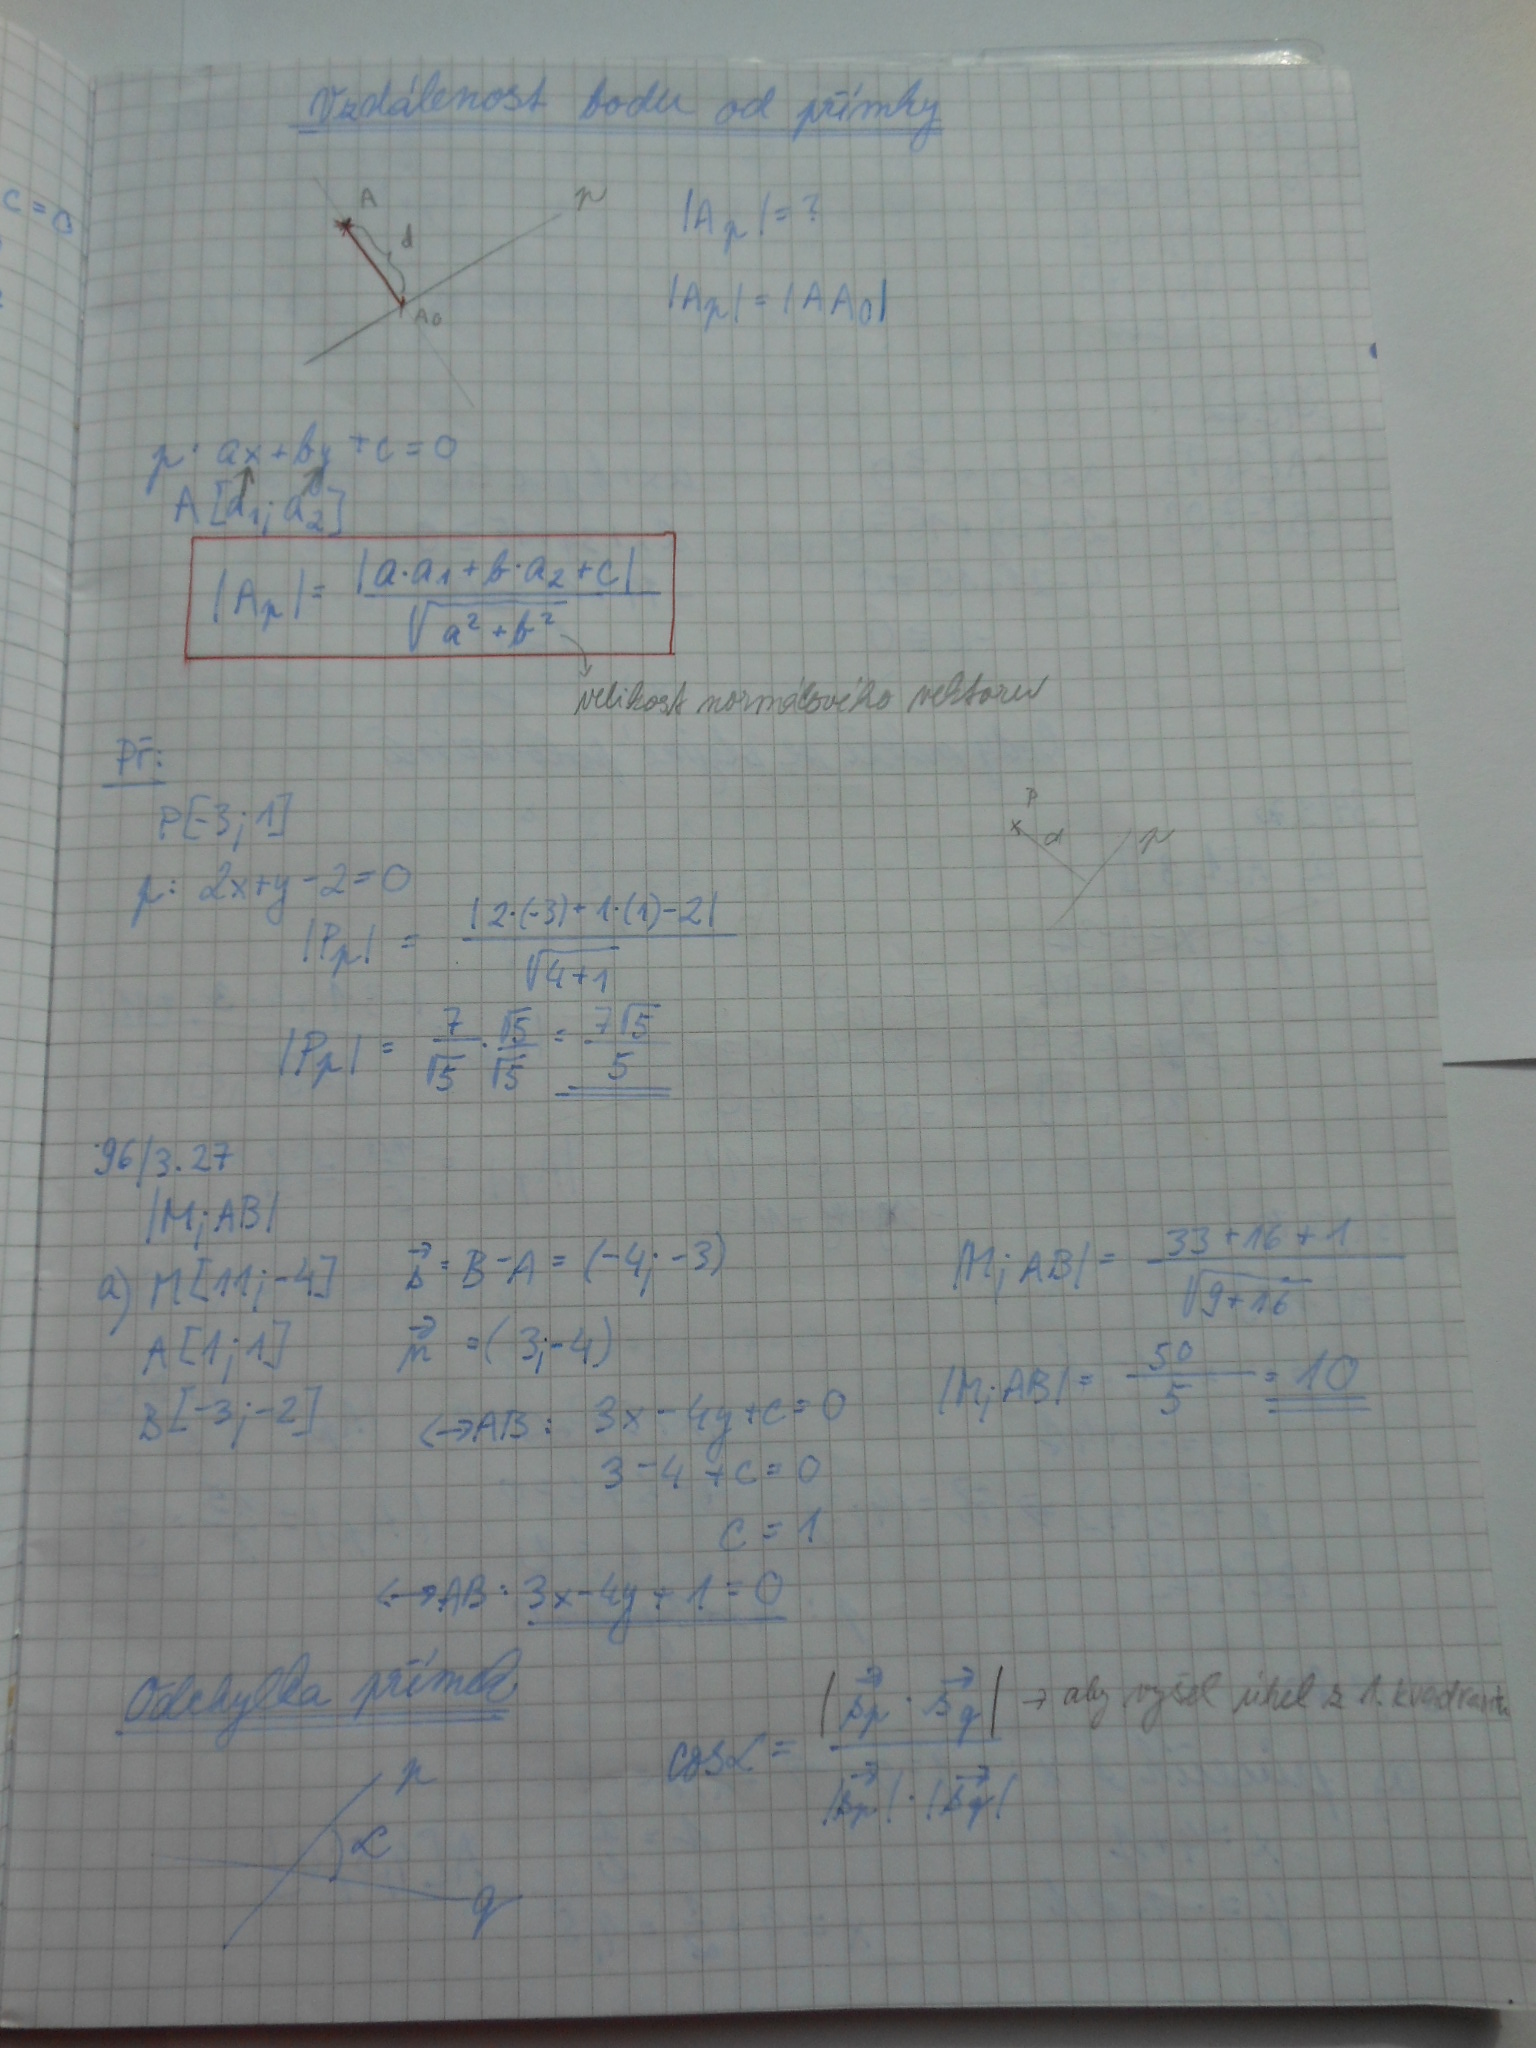 c = 0
Vzdálenost bodu od přímky
A
d
p
A₀
|Ap| = ?
|Ap| = |AA₀|
p: ax + by + c = 0
A[a₁; a₂]
|Ap| = |a·a₁ + b·a₂ + c| / √(a² + b²)
velikost normálového vektoru
Př:
P[-3; 1]
p: 2x + y - 2 = 0
P
d
p
|Pp| = |2·(-3) + 1·(1) - 2| / √(4+1)
|Pp| = 7/√5 · √5/√5 = 7√5/5
96/3.27
|M; AB|
a) M[11; -4]
A[1; 1]
B[-3; -2]
s⃗ = B - A = (-4; -3)
n⃗ = (3; -4)
↔AB: 3x - 4y + c = 0
3 - 4 + c = 0
c = 1
↔AB: 3x - 4y + 1 = 0
|M; AB| = (33 + 16 + 1) / √(9+16)
|M; AB| = 50/5 = 10
Odchylka přímek
p
α
q
cos α = |s⃗p · s⃗q| / |s⃗p| · |s⃗q|
→ aby vyšel úhel z 1. kvadrantu